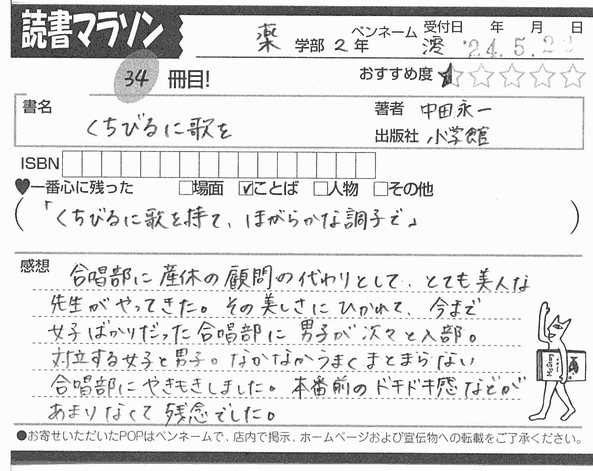 読書マラソン
薬 学部 2 年 ペンネーム 澪 受付日 年 月 日 '24.5.22
34 冊目!
おすすめ度 ★☆☆☆☆
書名 くちびるに歌を
著者 中田永一
出版社 小学館
ISBN
♥一番心に残った □場面 ☑ことば □人物 □その他
(「くちびるに歌を持て、ほがらかな調子で」)
感想
合唱部に産休の顧問の代わりとして、とても美人な
先生がやってきた。その美しさにひかれて、今まで
女子ばかりだった合唱部に男子が次々と入部。
対立する女子と男子。なかなかうまくまとまらない
合唱部にやきもきしました。本番前のドキドキ感などが
あまりなくて残念でした。
●お寄せいただいたPOPはペンネームで、店内で掲示、ホームページおよび宣伝物への転載をご了承ください。